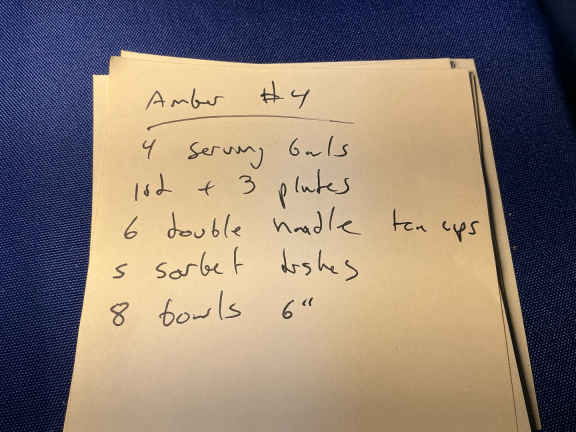 Amber #4
4 serving bowls
lid + 3 plates
6 double handle tea cups
5 sorbet dishes
8 bowls 6"